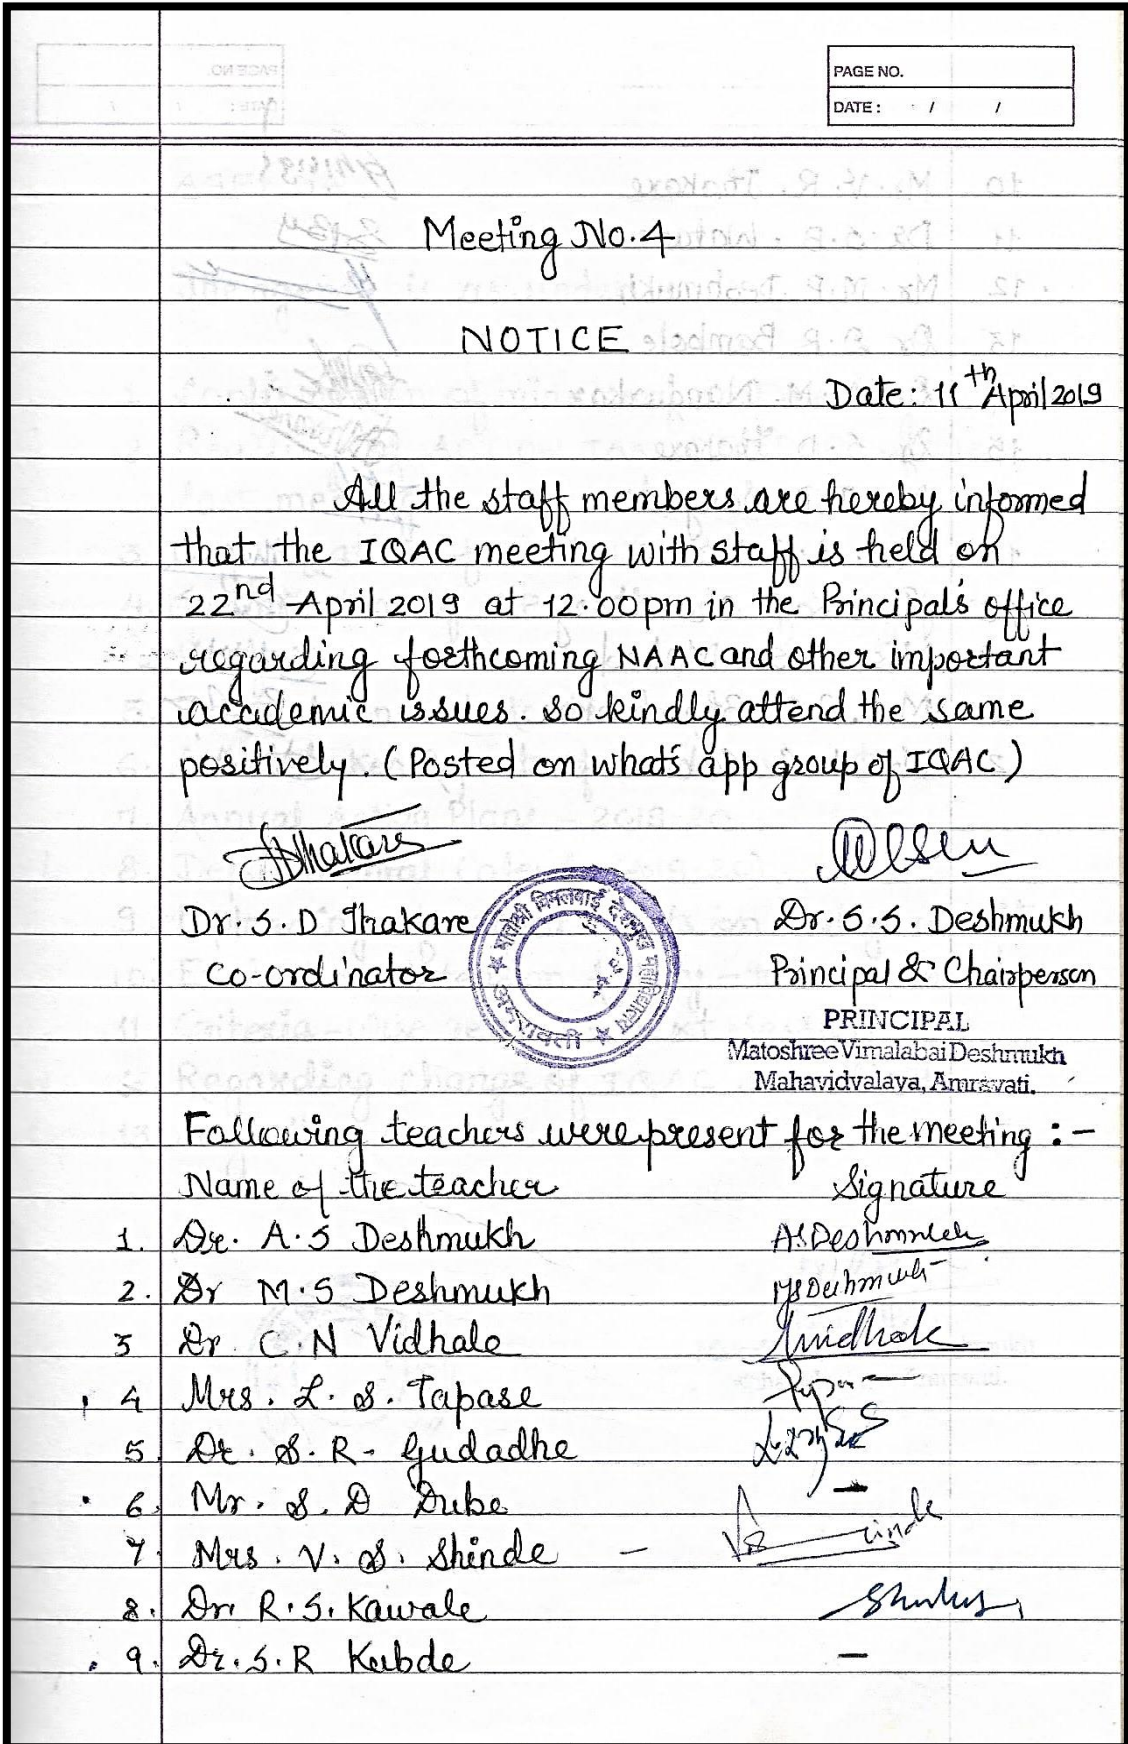 PAGE NO.
DATE : / /
Meeting No.4
NOTICE
Date: 11th April 2019
All the staff members are hereby informed
that the IQAC meeting with staff is held on
22nd April 2019 at 12.00pm in the Principal's office
regarding forthcoming NAAC and other important
academic issues. so kindly attend the same
positively. (Posted on what's app group of IQAC)
Dr. S. D Thakare
Dr. S.S. Deshmukh
Co-ordinator
Principal & Chairperson
मातोश्री विमलाबाई देशमुख महाविद्यालय
अमरावती
PRINCIPAL
Matoshree Vimalabai Deshmukh
Mahavidyalaya, Amravati.
Following teachers were present for the meeting :-
Name of the teacher Signature
1. Dr. A.S Deshmukh ASDeshmukh
2. Dr M.S Deshmukh MSDeshmukh
3 Dr. C.N Vidhale
4 Mrs. L. S. Tapase
5. Dr. S. R. Gudadhe
6. Mr. S. D Dube -
7. Mrs. V. S. Shinde -
8. Dr. R.S. Kawale
9. Dr. S. R Kubde -